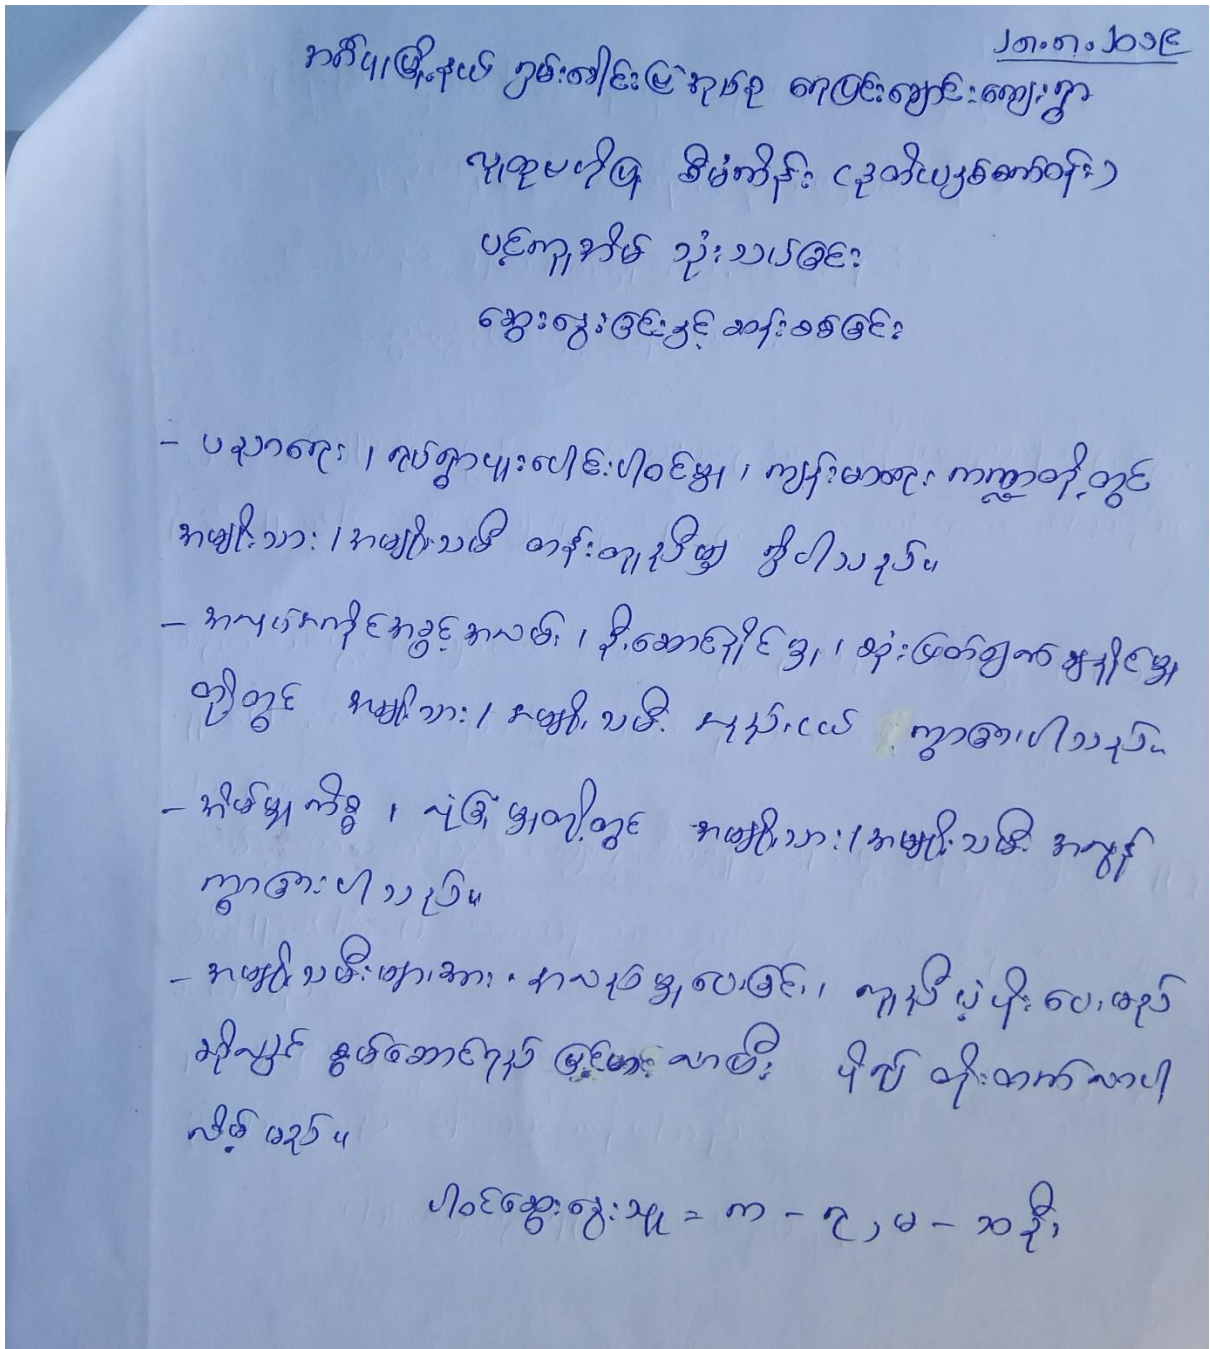 ၂၈.၈.၂၀၁၉
အင်္ဂပူမြို့နယ် ကွမ်းခေါင်းမြဲအုပ်စု ရေပြင်းချောင်းကျေးရွာ
လူထုဗဟိုပြု စီမံကိန်း (ဒုတိယနှစ်စက်ဝန်း)
ပင့်ကူအိမ် သုံးသပ်ခြင်း
ဆွေးနွေးခြင်းနှင့် ဆန်းစစ်ခြင်း
- ပညာရေး ၊ ရပ်ရွာပူးပေါင်းပါဝင်မှု ၊ ကျန်းမာရေး ကဏ္ဍတို့တွင်
အမျိုးသား / အမျိုးသမီး တန်းတူညီမျှ ရှိပါသည်။
- အလုပ်အကိုင်အခွင့်အလမ်း ၊ ဦးဆောင်နိုင်မှု ၊ ဆုံးဖြတ်ချက်ချနိုင်မှု
တို့တွင် အမျိုးသား / အမျိုးသမီး အနည်းငယ် ကွာခြားပါသည်။
- အိမ်မှုကိစ္စ ၊ လုံခြုံမှုတို့တွင် အမျိုးသား / အမျိုးသမီး အလွန်
ကွာခြားပါသည်။
- အမျိုးသမီးများအား နားလည်မှုပေးခြင်း ၊ ကူညီပံ့ပိုးပေးမည်
ဆိုလျှင် စွမ်းဆောင်ရည် မြင့်မားလာပြီး ပို၍ တိုးတက်လာပါ
လိမ့်မည်။
ပါဝင်ဆွေးနွေးသူ = က - ၇ ၊ မ - ၁၁ ဦး